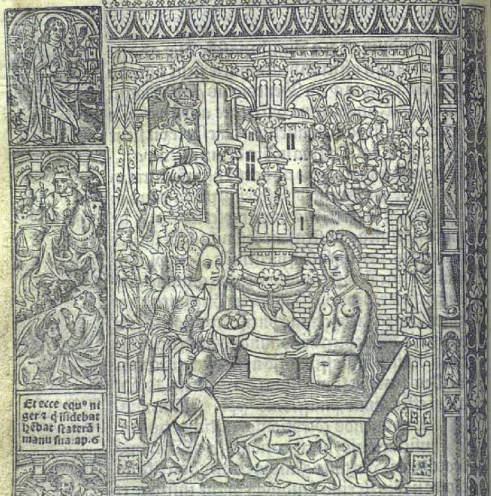 Et ecce equus ni
ger ⁊ q̇ isidebat
hēbat staterā i
manu sua. ap. 6